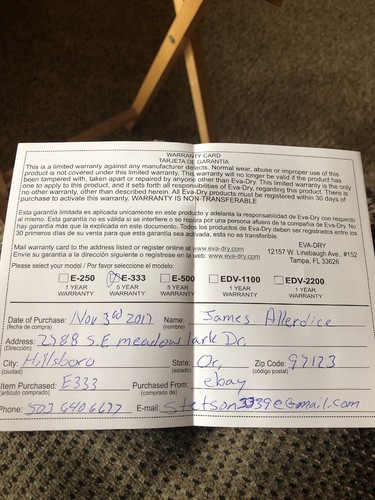 WARRANTY CARD
TARJETA DE GARANTÍA
This is a limited warranty against any manufacturer defects. Normal wear, abuse or improper use of this
product is not covered under this limited warranty. This warranty will no longer be valid if the product has
been tampered with, taken apart or repaired by anyone other than Eva-Dry. This limited warranty is the only
one to apply to this product, and it sets forth all responsibilities of Eva-Dry, regarding this product. There is
no other warranty, other than described herein. All Eva-Dry products must be registered within 30 days of
purchase to activate this warranty. WARRANTY IS NON-TRANSFERABLE
Esta garantía limitada es aplicada unicamente en este producto y adelanta la responsabilidad de Eva-Dry con respecto
al mismo. Esta garantía no es válida si se interfiere o se repara por una persona afuera de la compañia de Eva-Dry. No
hay garantía más que la explicada en este documento. Todos los productos de Eva-Dry deben ser registrados entre los
30 primeros días de su venta para que esta garantía sea activada, esta no es transferible.
Mail warranty card to the address listed or register online at www.eva-dry.com
Envíe su garantía a la dirección siguiente o regístrese en la web: www.eva-dry.com
EVA-DRY
12157 W. Linebaugh Ave., #152
Tampa, FL 33626
Please select your model / Por favor seleccione el modelo:
E-250 E-333 E-500 EDV-1100 EDV-2200
1 YEAR 5 YEAR 5 YEAR 1 YEAR 1 YEAR
WARRANTY WARRANTY WARRANTY WARRANTY WARRANTY
Date of Purchase: Nov 3rd 2017 Name: James Allerdice
(fecha de compra) (nombre)
Address: 2788 S.E. meadow lark Dr.
(Dirección)
City: Hillsboro State: Or, Zip Code: 97123
(ciudad) (estado) (código postal)
Item Purchased: E333 Purchased From: ebay
(articulo comprado) (comprado de)
Phone: 503 640 6677 E-mail: Stetson3339@Gmail.com